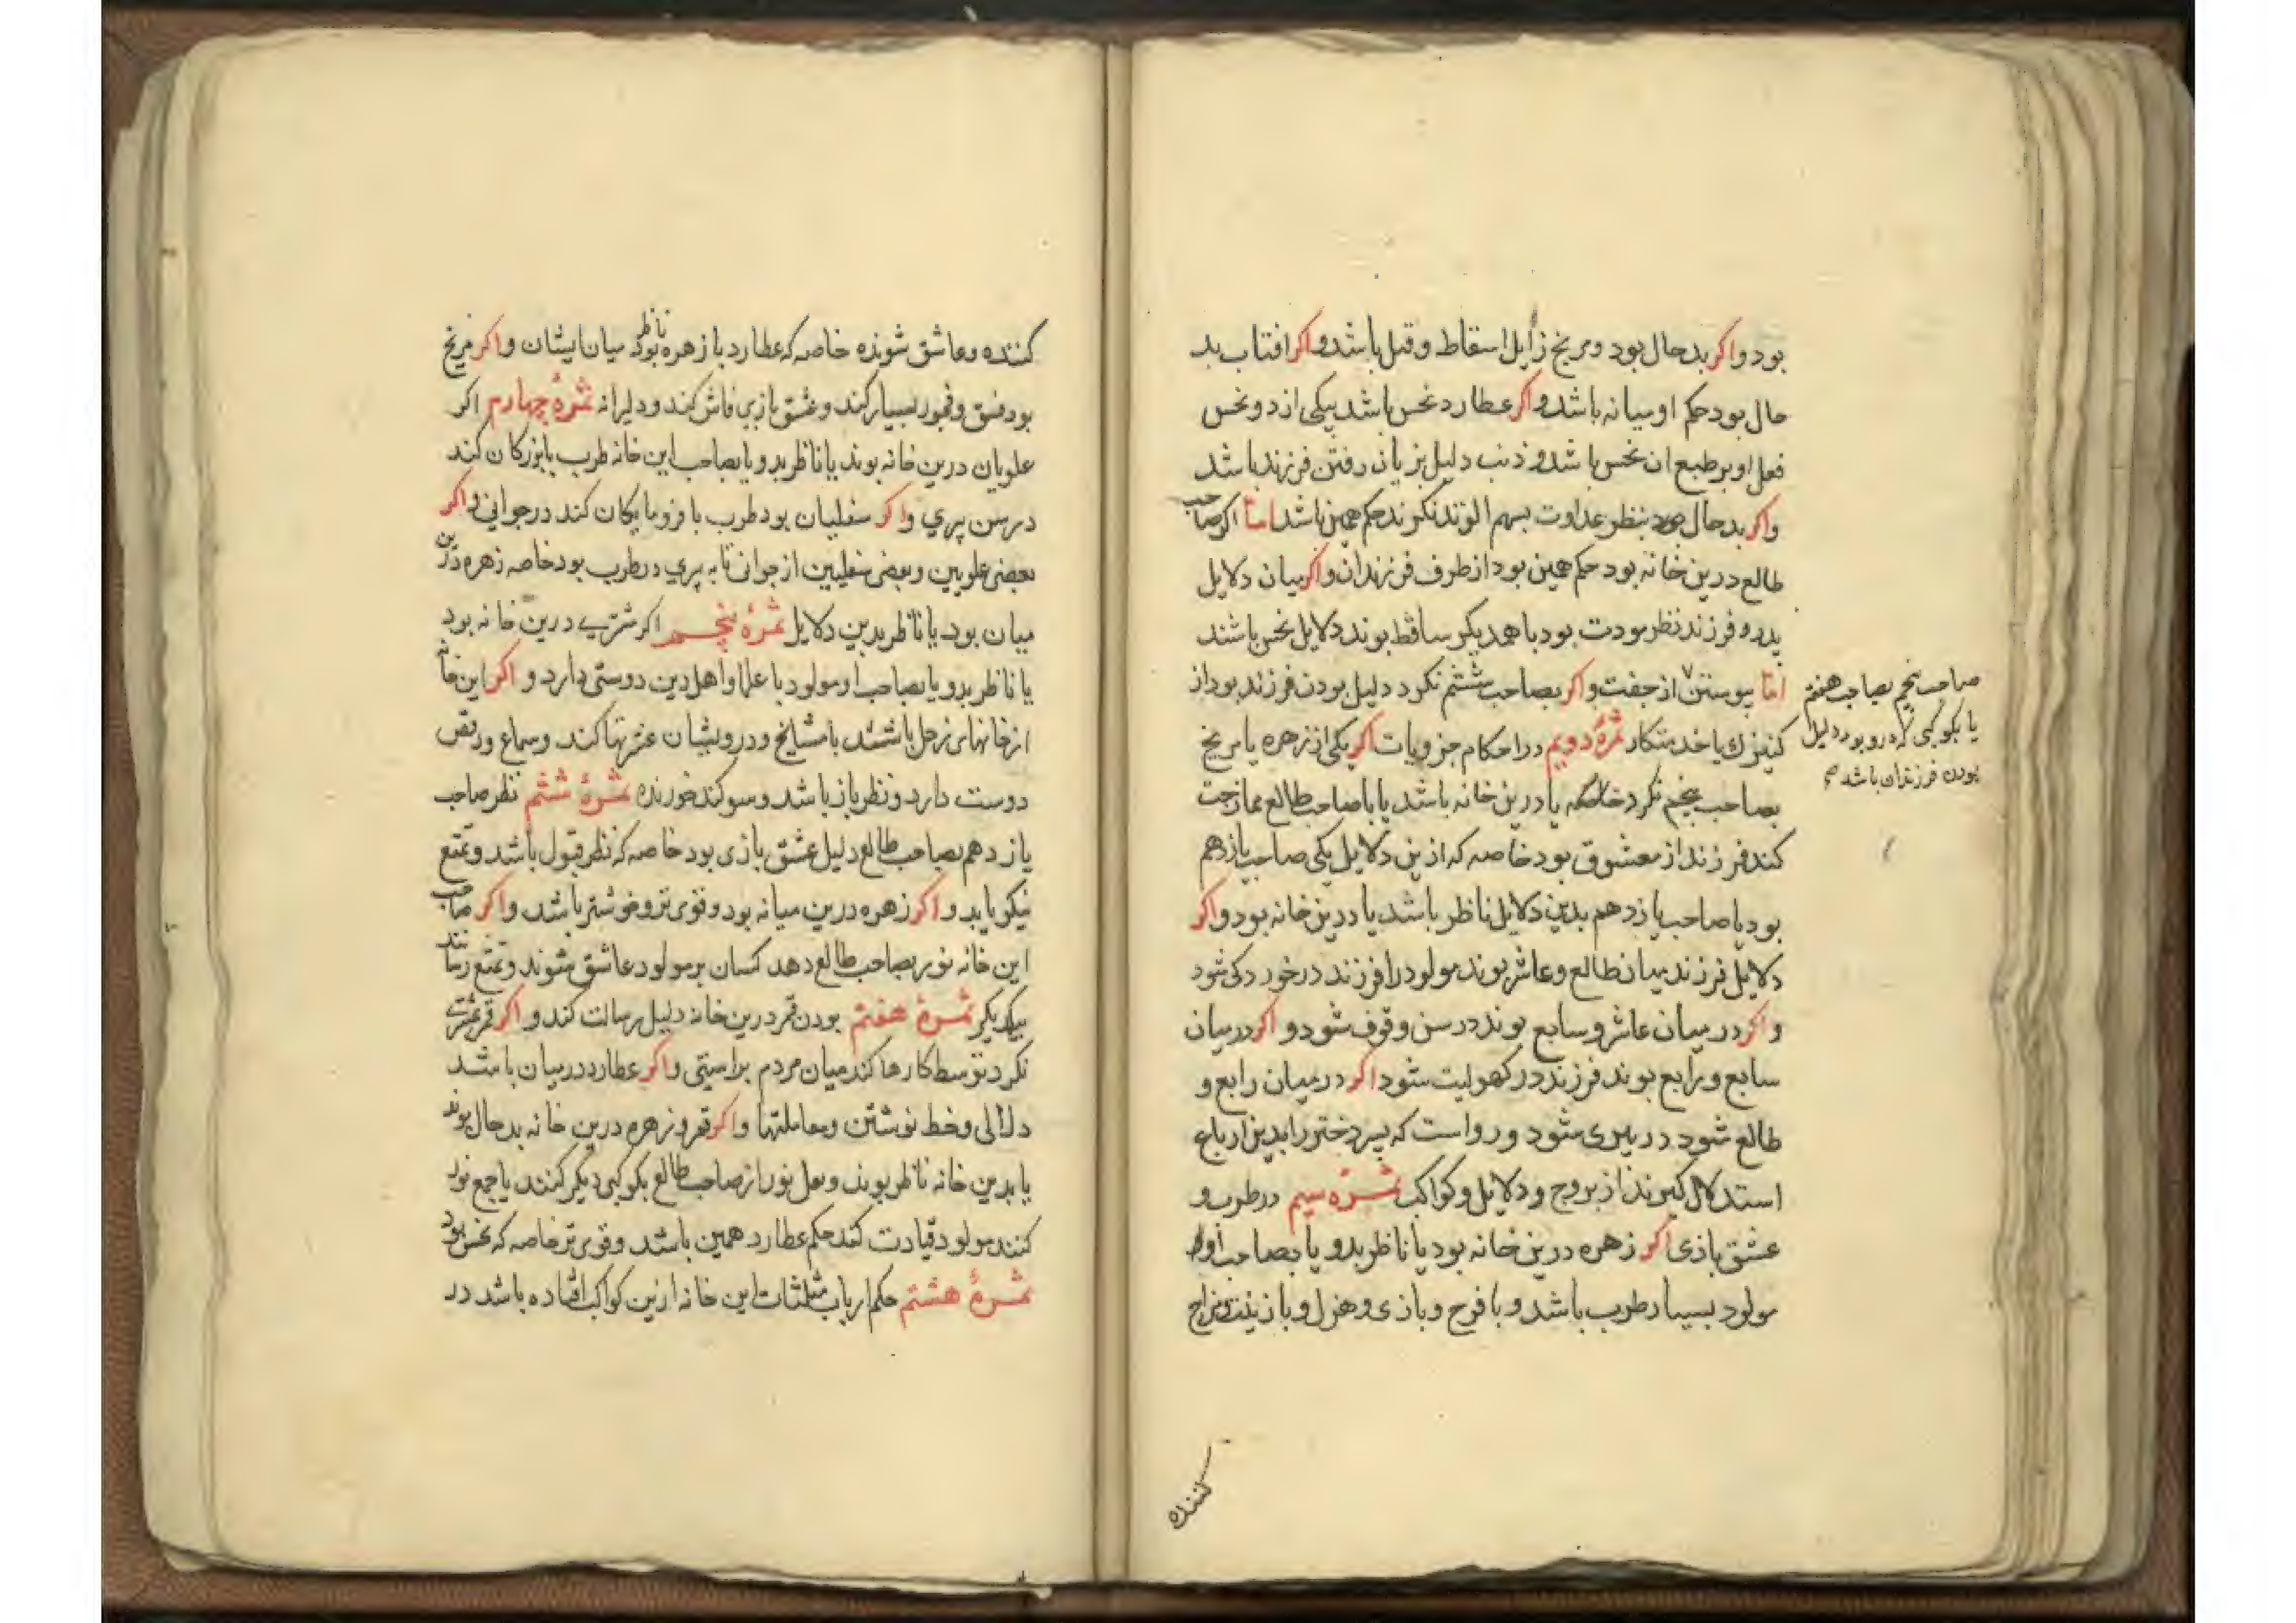 بود و اکر بد حال بود و مریخ زایل اسقاط و قتل باشد و اکر افتاب بد
حال بود حکم او میانه باشد و اکر عطارد نحس باشد بیکی از دو نحس
فعل او بر طبع ان نحس باشد و ذنب دلیل بزیان رفتن فرزند باشد
و اکر بد حال بود بنظر عداوت بسهم الولد نکرند حکم همین باشد اما اکر صاحب
طالع درین خانه بود حکم همین بود از طرف فرزندان و اکر میان دلایل
پدر و فرزند نظر مودت بود با همدیکر ساقط بوند دلایل نحس باشند
اما پیوستن از جفت و اکر بصاحب ششم نکرد دلیل بودن فرزند بود از
کنیزك یا خدمتکار ثمرهٔ دویم در احکام جزویات اکر یکی از زهره یا مریخ
بصاحب پنجم نکرد خاصه یا درین خانه باشد یا با صاحب طالع ممازجت
کند فرزند از معشوق بود خاصه که ازین دلایل یکی صاحب یازدهم
بود یا صاحب یازدهم بدین دلایل ناظر باشد یا درین خانه بود و اکر
دلایل فرزند میان طالع و عاشر بوند مولود را فرزند در خوردکی شود
و اکر در میان عاشر و سابع بوند در سن وقوف شود و اکر در میان
سابع و رابع بوند فرزند در کهولیت شود اکر در میان رابع و
طالع شود در پیری شود و رواست که پسر دختر را بدین ارباع
استدلال کیرند از بروج و دلایل و کواکب ثمرهٔ سیم در طرب و
عشق بازی اکر زهره درین خانه بود یا ناظر بدو یا بصاحب او
مولود بسیار طرب باشد و با فرح و بازی و هزل و با زینت و مزاح
صاحب پنجم بصاحب هفتم
یا بکوکبی که درو بود دلیل
بودن فرزندان باشد
کننده
کننده و عاشق شونده خاصه که عطارد با زهره ناظر بود میان ایشان و اکر مریخ
بود فسق و فجور بسیار کند و عشق بازی فاش کند و دلیرانه ثمرهٔ چهارم اکر
علویان درین خانه بوند یا ناظر بدو یا بصاحب این خانه طرب با بزرکان کند
در سن پیری و اکر سفلیان بود طرب با فرومایکان کند در جوانی و اکر
بعضی علویین و بعضی سفلیین از جوانی تا به پیری در طرب بود خاصه زهره درین
میان بود یا ناظر بدین دلایل ثمرهٔ پنجم اکر مشتری درین خانه بود
یا ناظر بدو یا بصاحب او مولود با علما و اهل دین دوستی دارد و اکر این خانه
از خانهای زحل باشد با مشایخ و درویشان عشرتها کند و سماع و رقص
دوست دارد و نظر باز باشد و سوکند خورنده ثمرهٔ ششم نظر صاحب
یازدهم بصاحب طالع دلیل عشق بازی بود خاصه که نظر قبول باشد و تمتع
نیکو یابد و اکر زهره درین میانه بود و قوی تر و خوشتر باشد و اکر صاحب
این خانه نور بصاحب طالع دهد کسان بر مولود عاشق شوند و تمتع رسانند
بیکدیکر ثمرهٔ هفتم بودن قمر درین خانه دلیل رسالت کند و اکر قمر بمشتری
نکرد توسط کارها کند میان مردم براستی و اکر عطارد در میان باشد
دلالی و خط نوشتن و معاملتها و اکر قمر و زهره درین خانه بد حال بوند
یا بدین خانه ناظر بوند و نقل نور از صاحب طالع بکوکبی دیکر کنند یا جمع نور
کنند مولود قیادت کند حکم عطارد همین باشد و قوی تر خاصه که نحس بود
ثمرهٔ هشتم حکم ارباب مثلثات این خانه ازین کواکب افتاده باشد در